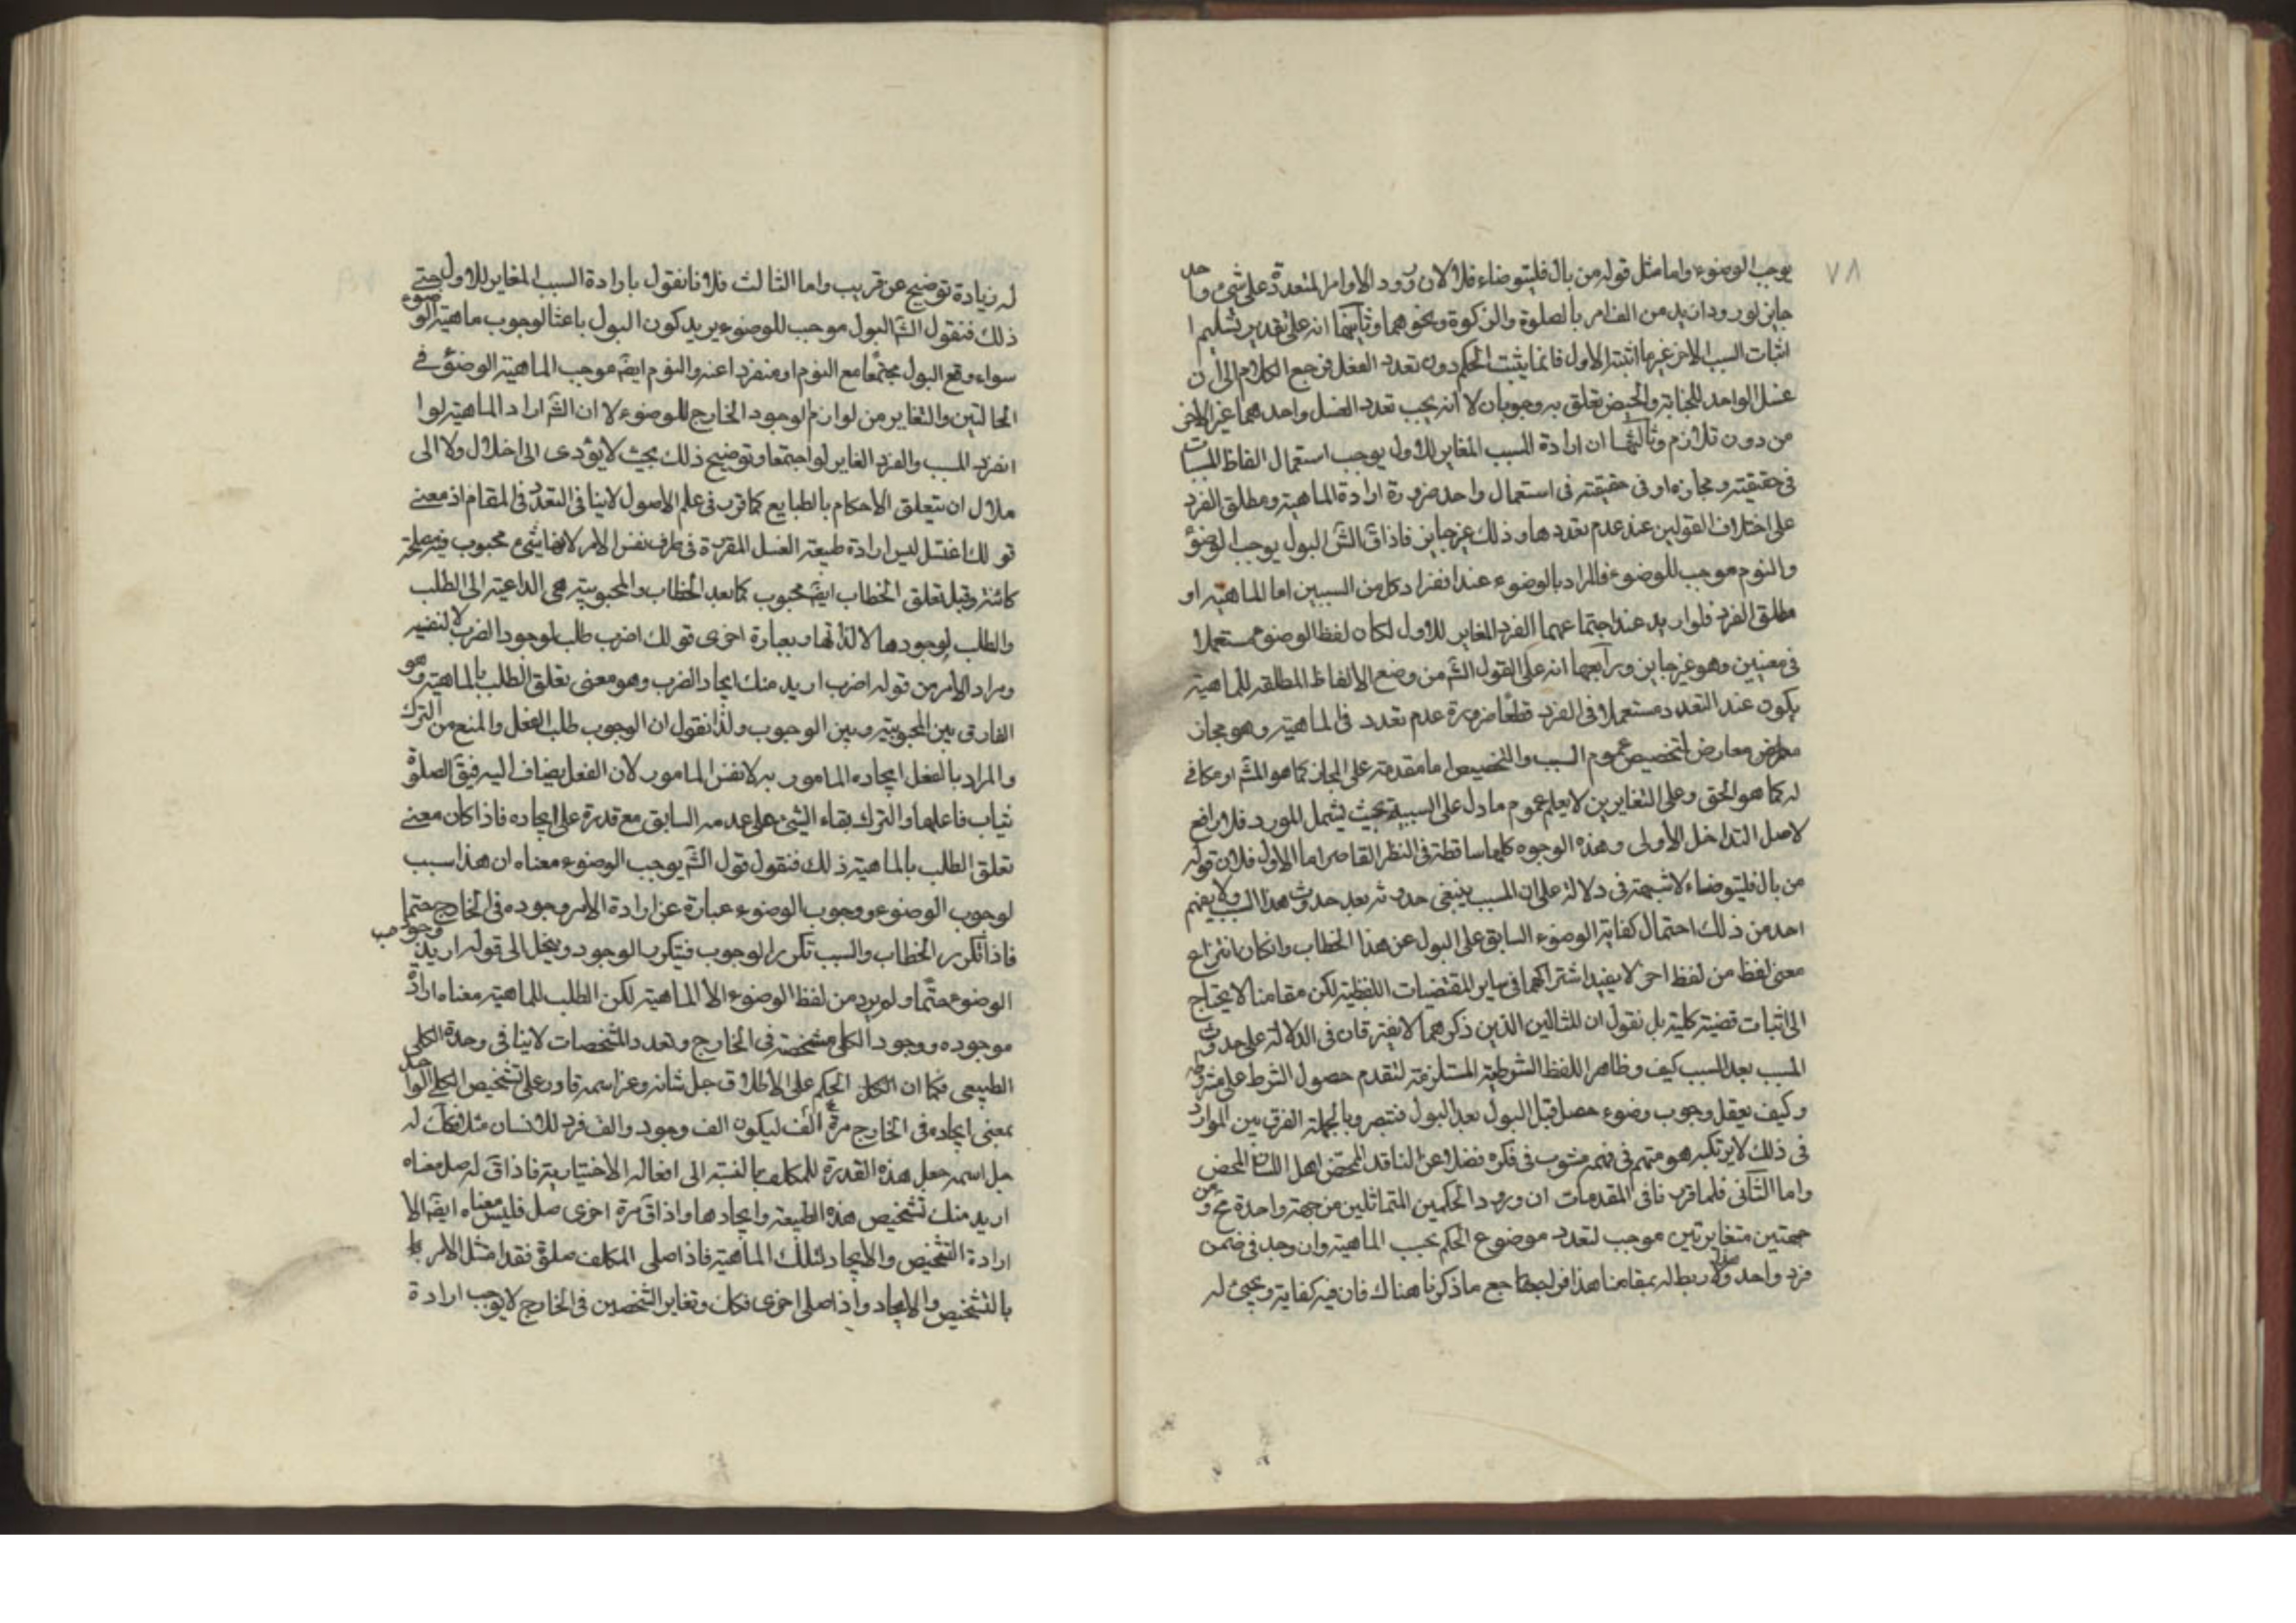 ٧٨
يوجب الوضوء واما مثل قوله من بال فليتوضاء فلا لان ورود الاوامر المتعددة على شيء واحد
جايز لورود ازيد من الف امر بالصلوة والزكوة ونحوهما وثانيها انه على تقدير تسليم ا
اثبات السبب الاخر غير ما اثبته الاول فانما يثبت الحكم دون تعدد الفعل فرجع الكلام الى ان
غسل الواحد للجنابة والحيض تعلق به وجوبان لا انه يجب تعدد الغسل واحدهما غير الاخر
من دون تلازم وثالثها ان ارادة المسبب المغاير للاول يوجب استعمال الفاظ المسببات
في حقيقته ومجازه او في حقيقته في استعمال واحد ضرورة ارادة الماهية ومطلق الفرد
على اختلاف القولين عند عدم تعددها وذلك غير جايز فاذا ق الش البول يوجب الوضوء
والنوم موجب للوضوء فالمراد بالوضوء عند انفراد كل من السببين اما الماهية او
مطلق الفرد فلو اريد عند اجتماعهما الفرد المغاير للاول لكان لفظ الوضوء مستعملا
في معنيين وهو غير جايز ورابعها انه على القول الش من وضع الالفاظ المطلقه للماهية
يكون عند التعدد مستعملا في الفرد قطعا ضرورة عدم تعدد في الماهية وهو مجاز
معارض لتخصيص عموم السبب والتخصيص اما مقدم على المجاز كما هو المش او مكافئ
له كما هو الحق وعلى التغايرين لا يعلم عموم ما دل على السببية بحيث يشمل المورد فلا رافع
لاصل التداخل الأولى وهذه الوجوه كلها ساقطة في النظر القاصر اما الاول فلان قوله
من بال فليتوضاء لا شبهة في دلالته على ان المسبب ينبغي حدوثه بعد حدوث هذا السبب ولا يفهم
احد من ذلك احتمال كفاية الوضوء السابق على البول عن هذا الخطاب وان كان انتزاع
معنى لفظ من لفظ اخر لا يفيد اشتراكهما في ساير المقتضيات اللفظية لكن مقامنا لا يحتاج
الى اثبات قضية كلية بل نقول ان المثالين الذين ذكرهما لا يفترقان في الدلالة على حدوث
المسبب بعد السبب كيف وظاهر اللفظ الشرطية المستلزمة لتقدم حصول الشرط على مشروطه
وكيف يعقل وجوب وضوء حصل قبل البول بعد البول فتبصر وبالجملة الفرق بين الموارد
في ذلك لا يرتكبه هو متهم في فهمه مشوب في فكره فضلا عن الناقد المحقق اهل اللسان المحض
واما الثاني فلما قررنا في المقدمات ان ورود الحكمين المتماثلين من جهة واحدة مح ومن
جهتين متغايرتين موجب لتعدد موضوع الحكم بحسب الماهية وان وجد في ضمن
فرد واحد ولا ربط له بمقامنا هذا فراجع ما ذكرنا هناك فان فيه كفاية ويجيئ له
له زيادة توضيح عن قريب واما الثالث فلا فانقول بارادة السبب المغاير للاول حتى
ذلك فنقول الش البول موجب للوضوء يريد كون البول باعثا لوجوب ماهية الوضوء
سواء وقع البول مجتمعا مع النوم او منفردا عنه والنوم ايضا موجب الماهية الوضوء في
الحالتين والتغاير من لوازم الوجود الخارج للوضوء لا ان الش اراد الماهية لو ا
انفرد المسبب والفرد الغاير لو اجتمعا وتوضيح ذلك بحيث لا يؤدى الى اخلال ولا الى
ملال ان يتعلق الاحكام بالطبايع كما قرر في علم الاصول لا ينافي التعدد في المقام اذ معنى
قولك اغتسل ليس ارادة طبيعة الغسل المقررة في ظرف نفس الامر لانها شيء محبوب فيه مصلحة
كائنة وقبل تعلق الخطاب ايضا محبوب كما بعد الخطاب والمحبوبية هي الداعية الى الطلب
والطلب لوجودها لا لذاتها وبعبارة اخرى قولك اضرب طلب لوجود الضرب لا لنفسه
ومراد الآمر من قوله اضرب اريد منك ايجاد الضرب وهو معنى تعلق الطلب بالماهية وهو
الفارق بين المحبوبية وبين الوجوب ولذا نقول ان الوجوب طلب الفعل والمنع من الترك
والمراد بالفعل ايجاده المامور به لا نفس المامور لان الفعل يضاف اليه فيق الصلوة
يثاب فاعلها والترك بقاء الشيئ على عدمه السابق مع قدرة على ايجاده فاذا كان معنى
تعلق الطلب بالماهية ذلك فنقول قول الش يوجب الوضوء معناه ان هذا سبب
لوجوب الوضوء ووجوب الوضوء عبارة عن ارادة الامر وجوده في الخارج حتما
فاذا تكرر الخطاب والسبب تكرر الوجوب فيتكرر الوجود وينحل الى قوله اريد وجود
الوضوء حتما ولم يرد من لفظ الوضوء الا الماهية لكن الطلب للماهية معناه ارادة
موجوده ووجود الكلي مشخصة في الخارج وتعدد المشخصات لا ينافي وحدة الكلي
الطبيعي فكما ان الحكم على الاطلاق جل شانه وعز اسمه قادر على تشخيص الكلي الواحد
بمعنى ايجاده في الخارج الف مرة ليكون الف وجود والف فرد للانسان مثلا فكك له
جل اسمه جعل هذه القدرة للمكلف بالنسبة الى افعاله الاختيارية فاذا ق له صل معناه
اريد منك تشخيص هذه الطبيعة وايجادها واذا ق مرة اخرى صل فليس معناه ايضا الا
ارادة التشخيص والايجاد لتلك الماهية فاذا صلى المكلف صلوة فقد امتثل الامر
بالتشخيص والايجاد واذا صلى اخرى فكك وتغاير الشخصين في الخارج لا يوجب ارادة